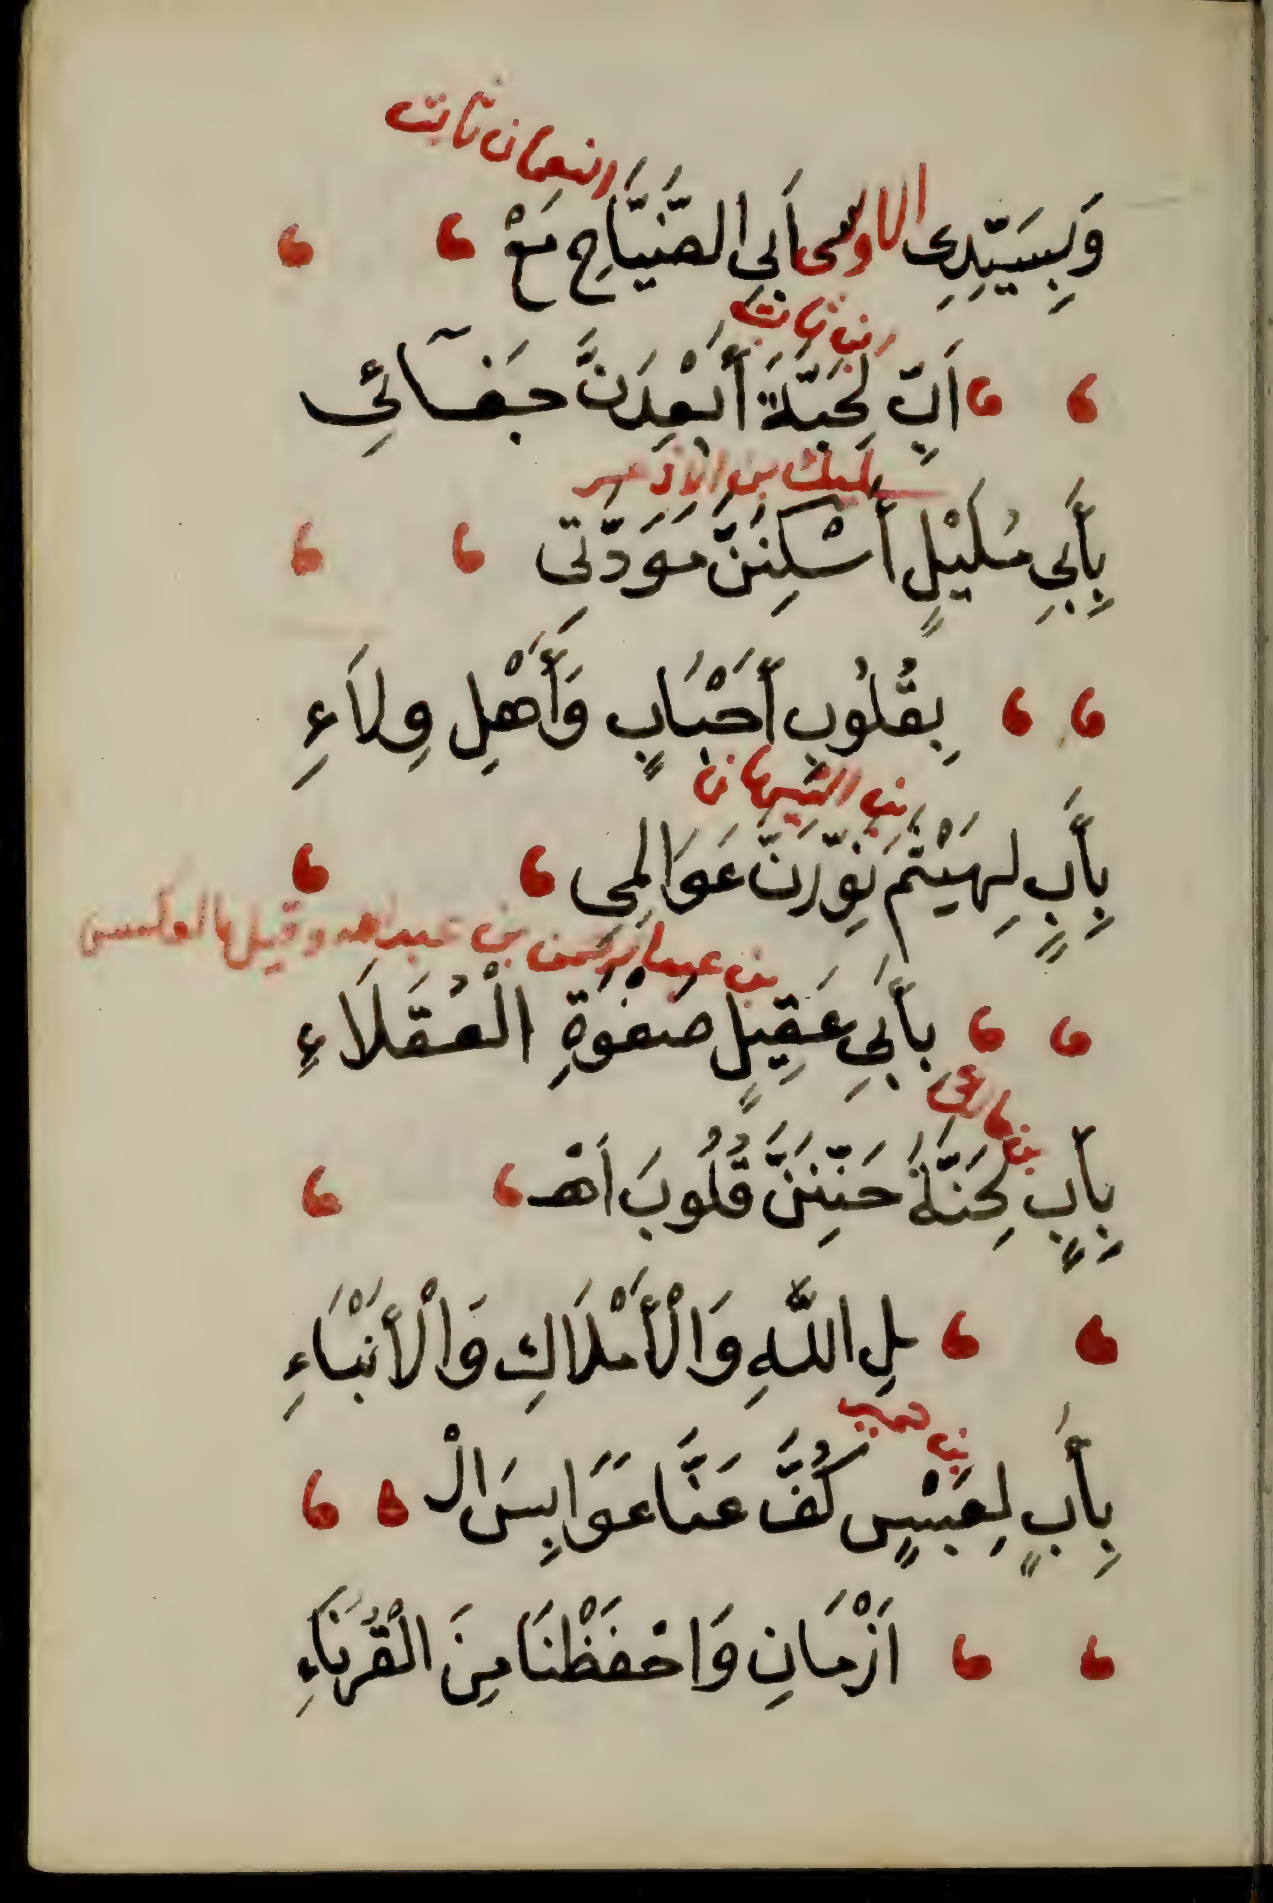 النعمان ثابت
وَبِسَيِّدِى الاوسى أَبِي الضَّيَّاحِ مَعْ
بن ثابت
اَبٍّ لِحَبَّةَ أَبْعِدَنَّ جَفَآئِى
سليك بن الاذعر
بِأَبِي مُلَيْلٍ أَسْكِنَنَّ مَوَدَّتِي
بِقُلُوبِ أَحْبَابٍ وَأَهْلِ وِلَاءِ
بن التيهان
بِأَبٍ لِهَيْثَمَ نَوِّرَنَّ عَوَالِمِي
بن عبدالرحمن بن عبدالله وقيل
بِأَبِي عَقِيلٍ صَفْوَةِ الْعُقَلَاءِ
بن
بِأَبٍ لِحَنَّةَ حَنِّنَنَّ قُلُوبَ اَهْـ
ـلِ اللَّهِ وَالْأَمْلَاكِ وَالْأَنْبَاءِ
بن
بِأَبٍ لِعَبْسٍ كُفَّ عَنَّا عَوَابِسَ الْـ
اَزْمَانِ وَاحْفَظْنَا مِنَ الْقُرَنَاءِ